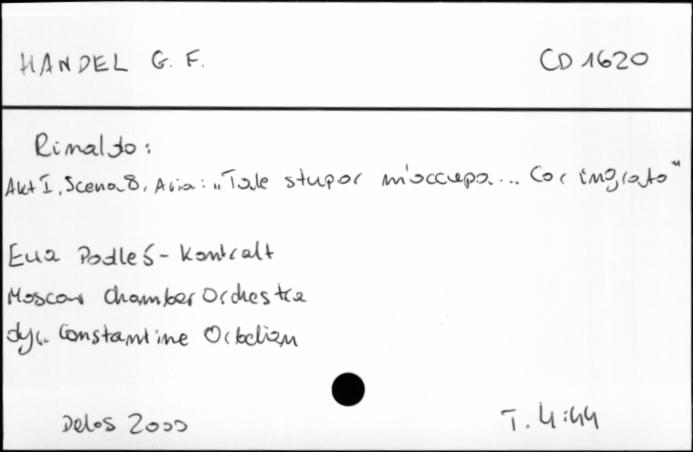 HANDEL G. F. CD 1620
Rinaldo:
Akt I, Scena 8, Aria: „Tale stupor m'occupa... Cor ingrato"
Ewa Podleś - kontralt
Moscow Chamber Orchestra
dyr. Constantine Orbelian
Delos 2000 T. 4:44